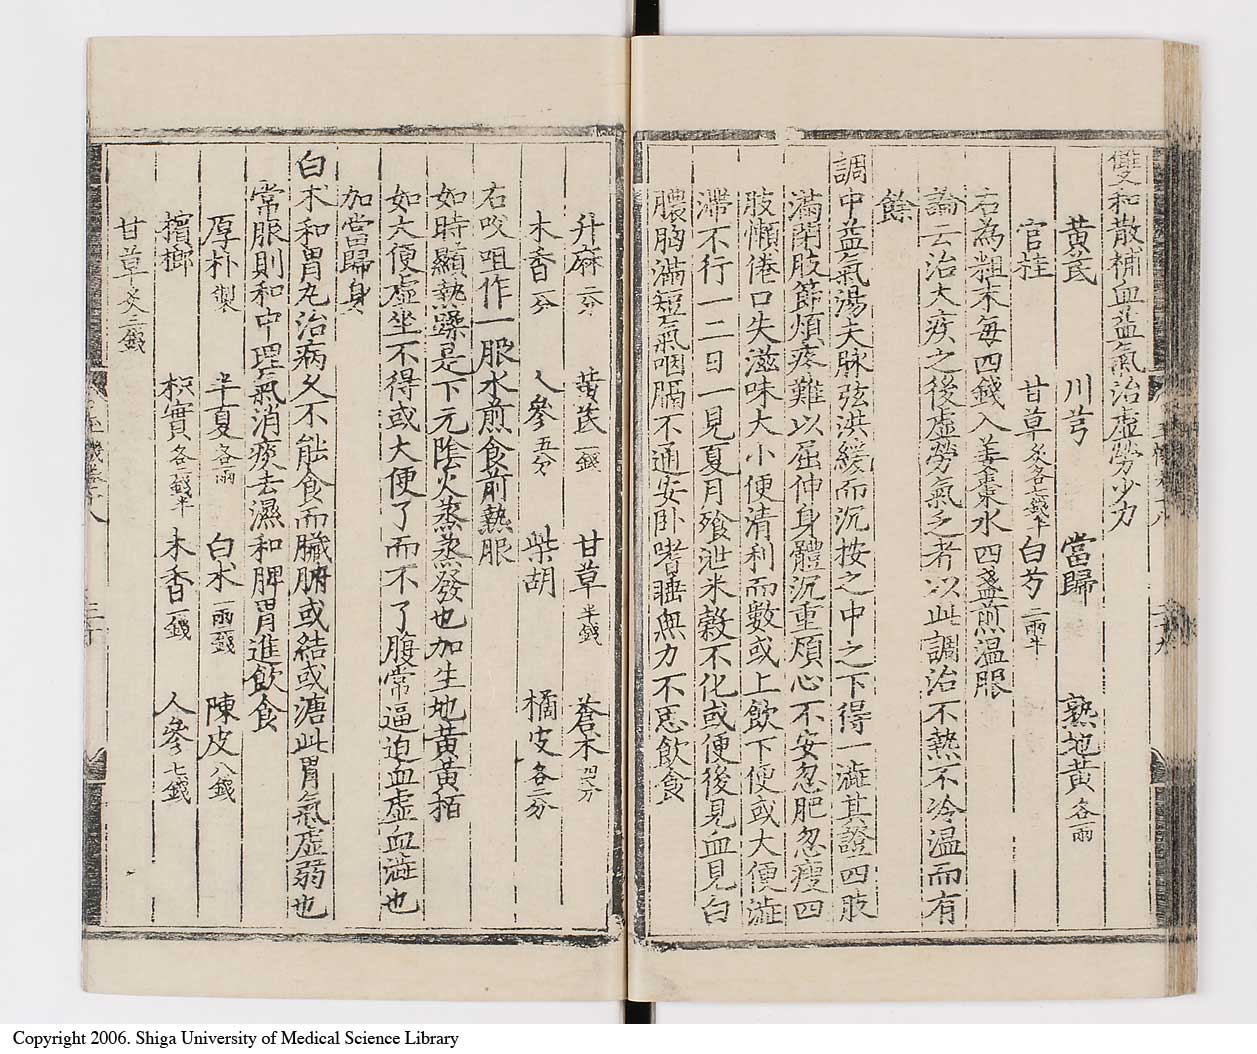 雙和散補血益氣治虛勞少力
黃芪 川芎 當歸 熟地黃各一兩
官桂 甘草炙各七錢半 白芍二兩半
右為粗末每四錢入姜棗水四盞煎溫服
論云治大疾之後虛勞氣乏者以此調治不熱不冷溫而有
餘
調中益氣湯夫脉弦洪緩而沉按之中之下得一澁其證四肢
滿悶肢節煩疼難以屈伸身體沉重煩心不安忽肥忽瘦四
肢懶倦口失滋味大小便清利而數或上飲下便或大便澁
滯不行一二日一見夏月飱泄米穀不化或便後見血見白
膿胸滿短氣咽膈不通安卧嗜睡無力不思飲食
升麻二分 黃芪一錢 甘草半錢 蒼朮四分
木香一分 人參五分 柴胡 橘皮各二分
右㕮咀作一服水煎食前熱服
如時顯熱躁是下元陰火蒸蒸發也加生地黃黃栢
如大便虛坐不得或大便了而不了腹常逼迫血虛血澁也
加當歸身
白朮和胃丸治病久不能食而臟腑或結或溏此胃氣虛弱也
常服則和中理氣消痰去濕和脾胃進飲食
厚朴製 半夏各一兩 白朮一兩二錢 陳皮八錢
檳榔 枳實各二錢半 木香一錢 人參七錢
甘草炙三錢
Copyright 2006. Shiga University of Medical Science Library